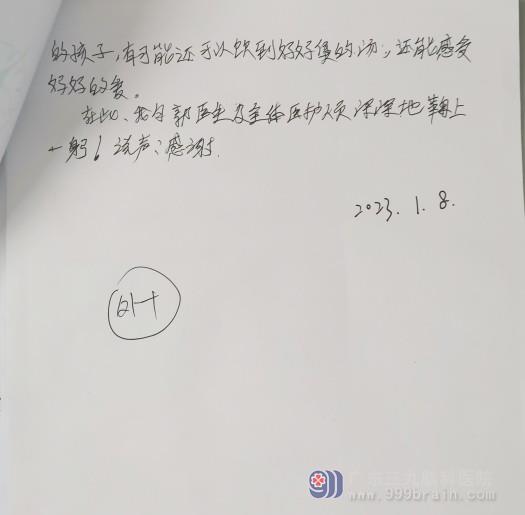 的孩子,有可能还可以饮到好好煲的汤,还能感受
好好的爱。
在此、我向郭医生及全体医护人员深深地鞠上
一躬!说声:感谢.
2023.1.8.
广东三九脑科医院
www.999brain.com